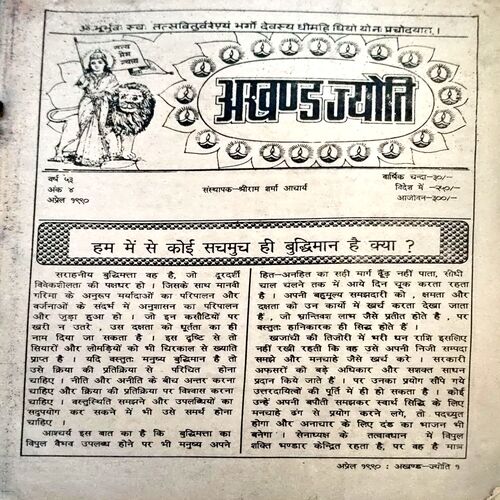 ॐ भूर्भुवः स्वः तत्सवितुर्वरेण्यं भर्गो देवस्य धीमहि धियो योनः प्रचोदयात्।
अखण्ड ज्योति
वर्ष ५३
अंक ४
अप्रेल १९९०
संस्थापक-श्रीराम शर्मा आचार्य
वार्षिक चन्दा-३०/-
विदेश में -२५०/-
आजीवन-३००/-
हम में से कोई सचमुच ही बुद्धिमान है क्या ?
सराहनीय बुद्धिमत्ता वह है, जो दूरदर्शी
विवेकशीलता की पक्षधर हो । जिसके साथ मानवी
गरिमा के अनुरूप मर्यादाओं का परिपालन और
वर्जनाओं के संदर्भ में अनुशासन का परिपालन
और जुड़ा हुआ हो । जो इन कसौटियों पर
खरी न उतरे , उस दक्षता को धूर्तता का ही
नाम दिया जा सकता है । इस दृष्टि से तो
सियारों और लोमड़ियों को भी चिरकाल से ख्याति
प्राप्त है । यदि वस्तुतः मनुष्य बुद्धिमान है तो
उसे क्रिया की प्रतिक्रिया से परिचित होना
चाहिए । नीति और अनीति के बीच अन्तर करना
चाहिए और क्रिया की प्रतिक्रिया पर विश्वास करना
चाहिए । वस्तुस्थिति समझने और उपलब्धियों का
सदुपयोग कर सकने में भी उसे समर्थ होना
चाहिए ।
आश्चर्य इस बात का है कि बुद्धिमत्ता का
विपुल वैभव उपलब्ध होने पर भी मनुष्य अपने
हित-अनहित का सही मार्ग ढूँढ़ नहीं पाता, सीधी
चाल चलने तक में आये दिन चूक करता रहता
है । अपनी बहुमूल्य समझदारी को , क्षमता और
दक्षता को उन कार्यों में खर्च करता देखा जाता
हैं, जो भ्रान्तिवश लाभ जैसे प्रतीत होते है , पर
वस्तुतः हानिकारक ही सिद्ध होते हैं ।
खजांची की तिजोरी में भरी धन राशि इसलिए
नहीं रखी रहती कि वह उसे अपनी निजी सम्पदा
समझे और मनचाहे जैसे खर्च करे । सरकारी
अफसरों को बड़े अधिकार और सशक्त साधन
प्रदान किये जाते हैं । पर उनका प्रयोग सौंपे गये
उत्तरदायित्वों की पूर्ति में ही हो सकता है । कोई
उन्हें अपनी बपौती समझकर स्वार्थ सिद्धि के लिए
मनचाहे ढंग से प्रयोग करने लगे, तो पदच्युत
होगा और अनाचार के लिए दंड का भाजन भी
बनेगा । सेनाध्यक्ष के तत्वावधान में विपुल
शक्ति भण्डार केन्द्रित रहता है, पर वह है मात्र
अप्रेल १९९० : अखण्ड-ज्योति १